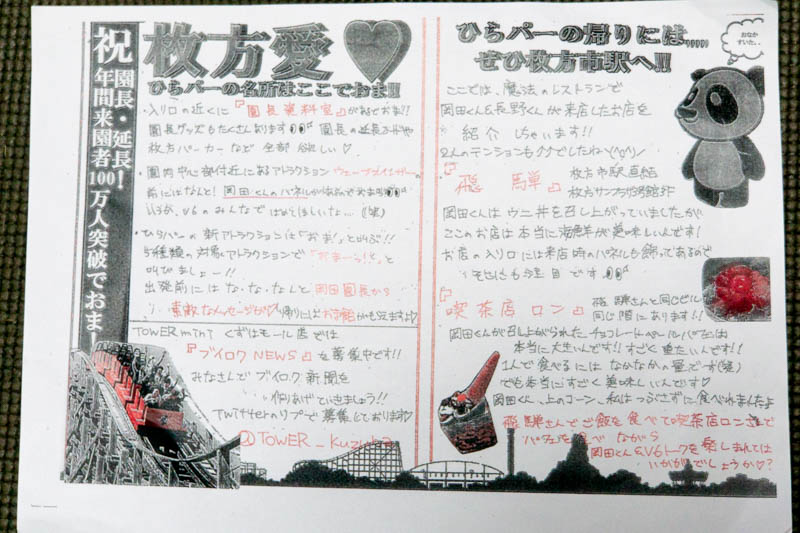 祝 園長・延長!
年間来園者100万人突破でおま!
枚方愛
ひらパーの名所はここでおま!!
・入り口の近くに『園長資料室』があるでおま!!
園長グッズもたくさんあります
枚方パーカーなど 全部 欲しい♡
・園内中心部付近にあるアトラクション ウェーブスインガーの
前にはなんと! 岡田くんのパネルが
V6のみんなで
・ひらパーの新アトラクションは「おま!」と叫ぶ!!
5種類の対象アトラクションで「おまーっ!」と
叫びましょー!!
出発前には な・な・なんと 岡田園長から
素敵なメッセージが
TOWERmini くずはモール店では
『ブイロクNEWS』を募集中です!!
みなさんでブイロク新聞を
作りあげていきましょう!!
Twitterのリプで募集しております♡
@TOWER_Kuzuha
ひらパーの帰りには……
ぜひ枚方市駅へ!!
おなか
すいた、、
ここでは、魔法のレストランで
岡田くん&長野くんが来店したお店を
紹介しちゃいます!!
2人のテンションも
『飛騨』 枚方市駅直結
枚方サンプラザ3号館
岡田くんはウニ丼を召し上がっていましたが
このお店は本当に海鮮が美味しいんです!
お店の入り口には来店時のパネルも飾ってあるので
そちらも注目です
『喫茶店 ロン』 飛騨さんと同じビル
同じ階にあります!!
岡田くんが召し上がられたチョコレート
本当に大きいんです!!すごく重たいんです!!
1人で食べるにはなかなかの量です(笑)
でも本当にすごく美味しいんです♡
岡田くん、上のコーン、私はつぶさずに食べれましたよ
飛騨さんでご飯を食べて喫茶店ロンさんで
パフェを食べながら
岡田くん&V6トークを楽しまれては
いかがでしょうか♡?